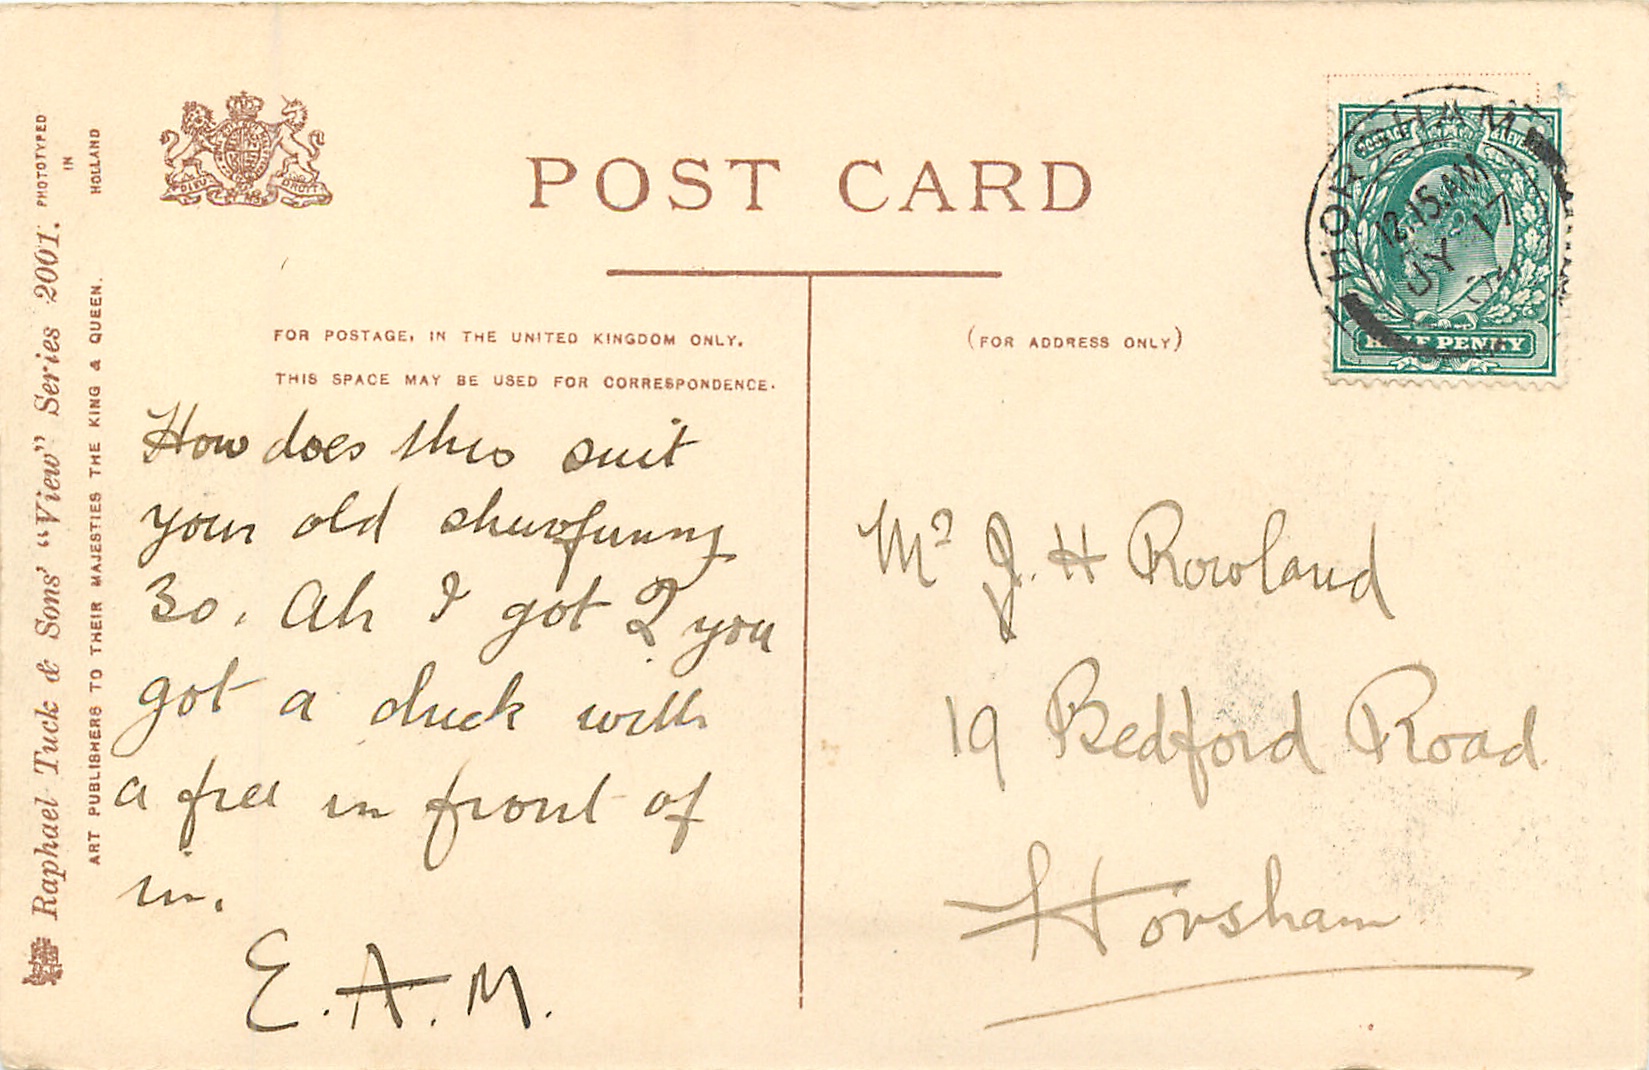 PHOTOTYPED
IN
HOLLAND
Raphael Tuck & Sons' "View" Series 2001.
ART PUBLISHERS TO THEIR MAJESTIES THE KING & QUEEN.
DIEU DROIT
POST CARD
FOR POSTAGE, IN THE UNITED KINGDOM ONLY.
THIS SPACE MAY BE USED FOR CORRESPONDENCE.
(FOR ADDRESS ONLY)
POSTAGE & REVENUE
HALF PENNY
HORSHAM
12.15 AM
JY 17
How does this suit
your old
30. Ah I got 2 you
got a duck with
a free in front of
in.
E. A. M.
Mr J. H Rowland
19 Bedford Road
Horsham